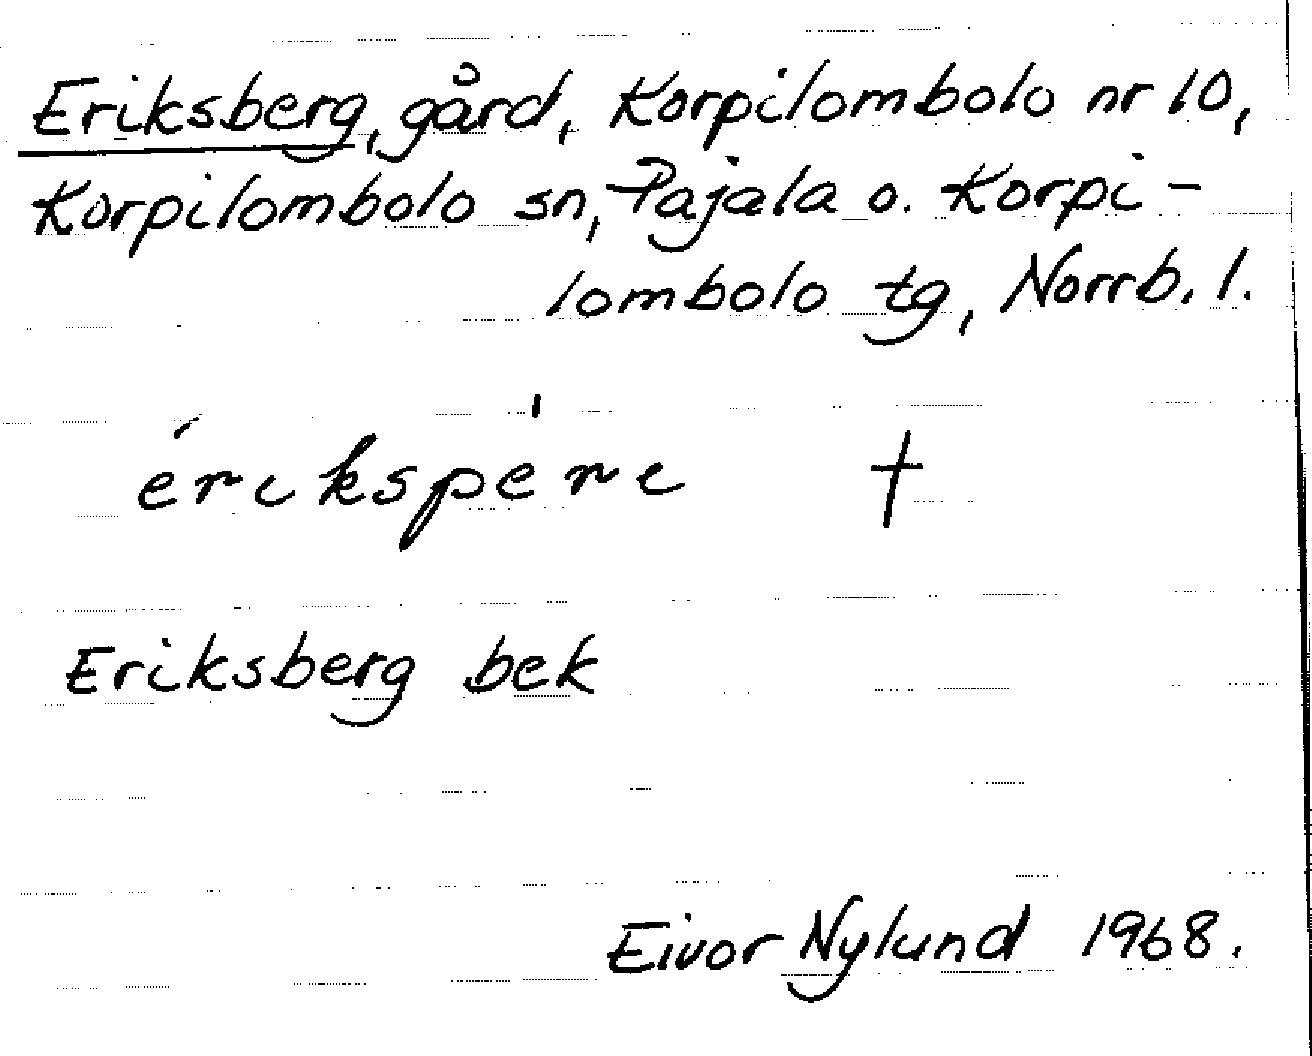 Eriksberg, gård, Korpilombolo nr 10,
Korpilombolo sn, Pajala o. Korpi-
lombolo tg, Norrb. l.
érikspèri †
Eriksberg bek
Eivor Nylund 1968.